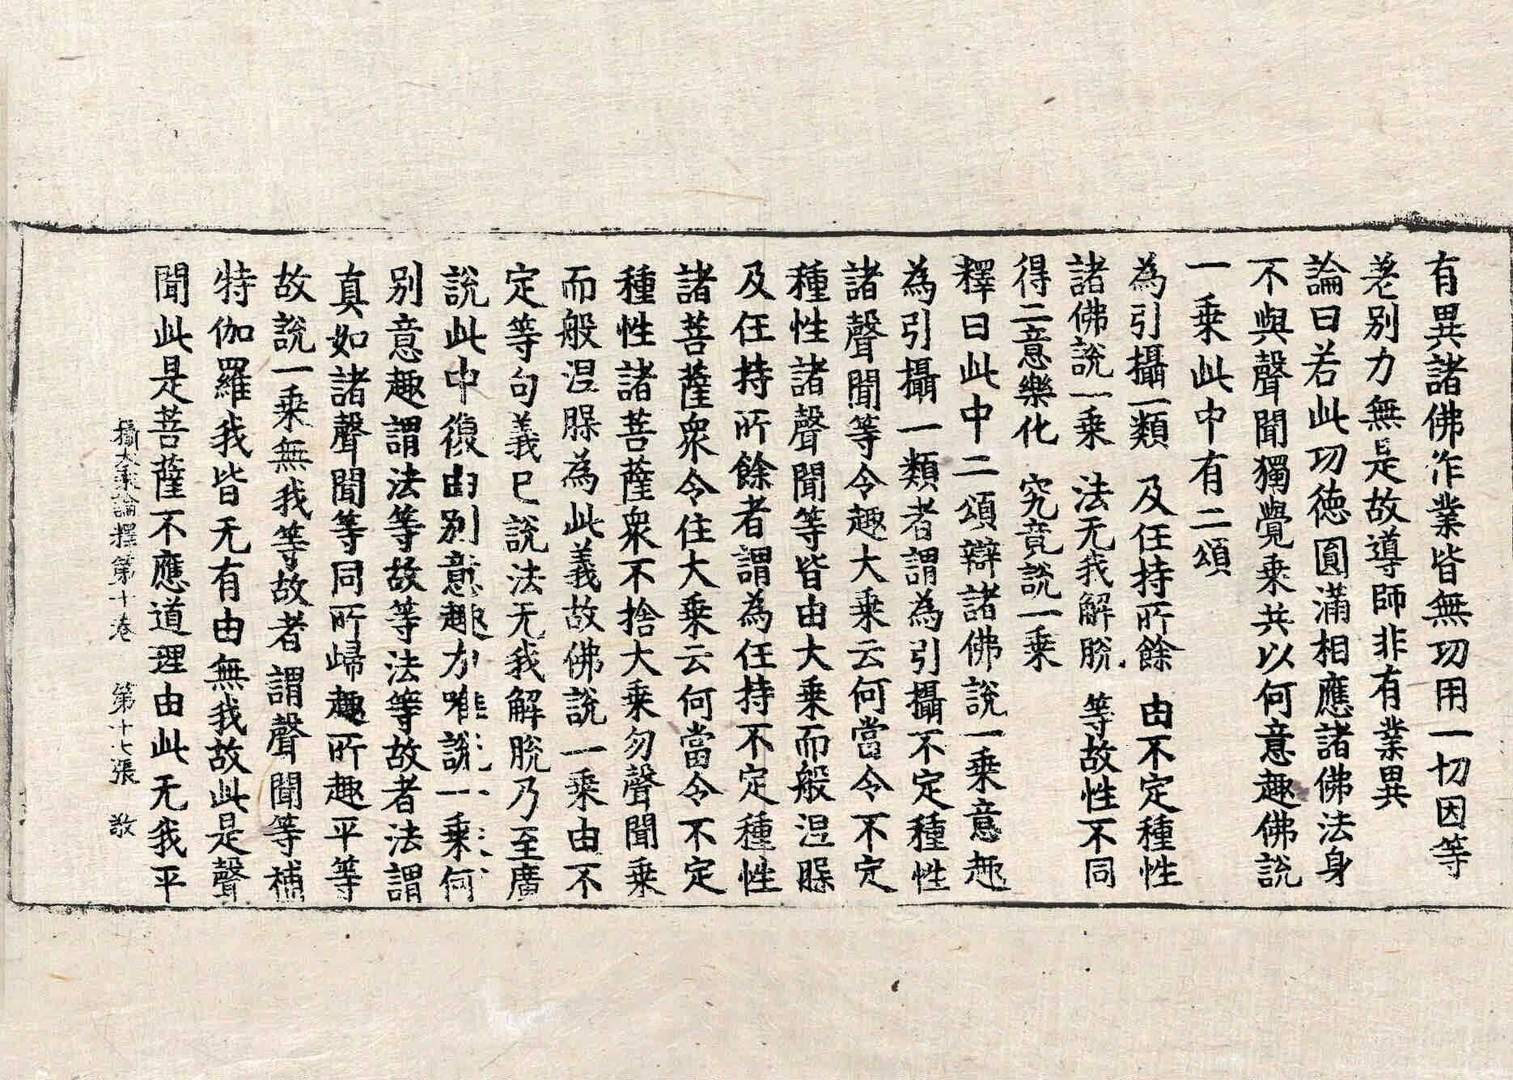 有異諸佛作業皆無功用一切因等
差別力無是故導師非有業異
論曰若此功德圓滿相應諸佛法身
不與聲聞獨覺乘共以何意趣佛說
一乘此中有二頌
為引攝一類　及任持所餘　由不定種性
諸佛說一乘　法无我解脫　等故性不同
得二意樂化　究竟說一乘
釋曰此中二頌辯諸佛說一乘意趣
為引攝一類者謂為引攝不定種性
諸聲聞等令趣大乘云何當令不定
種性諸聲聞等皆由大乘而般涅槃
及任持所餘者謂為任持不定種性
諸菩薩衆令住大乘云何當令不定
種性諸菩薩衆不捨大乘勿聲聞乘
而般涅槃為此義故佛說一乘由不
定等句義已說法无我解脫乃至廣
說此中復由別意趣力唯說一乘何
別意趣謂法等故等法等故者法謂
真如諸聲聞等同所歸趣所趣平等
故說一乘無我等故者謂聲聞等補
特伽羅我皆无有由無我故此是聲
聞此是菩薩不應道理由此无我平
攝大乘論釋第十卷　第十七張　敢